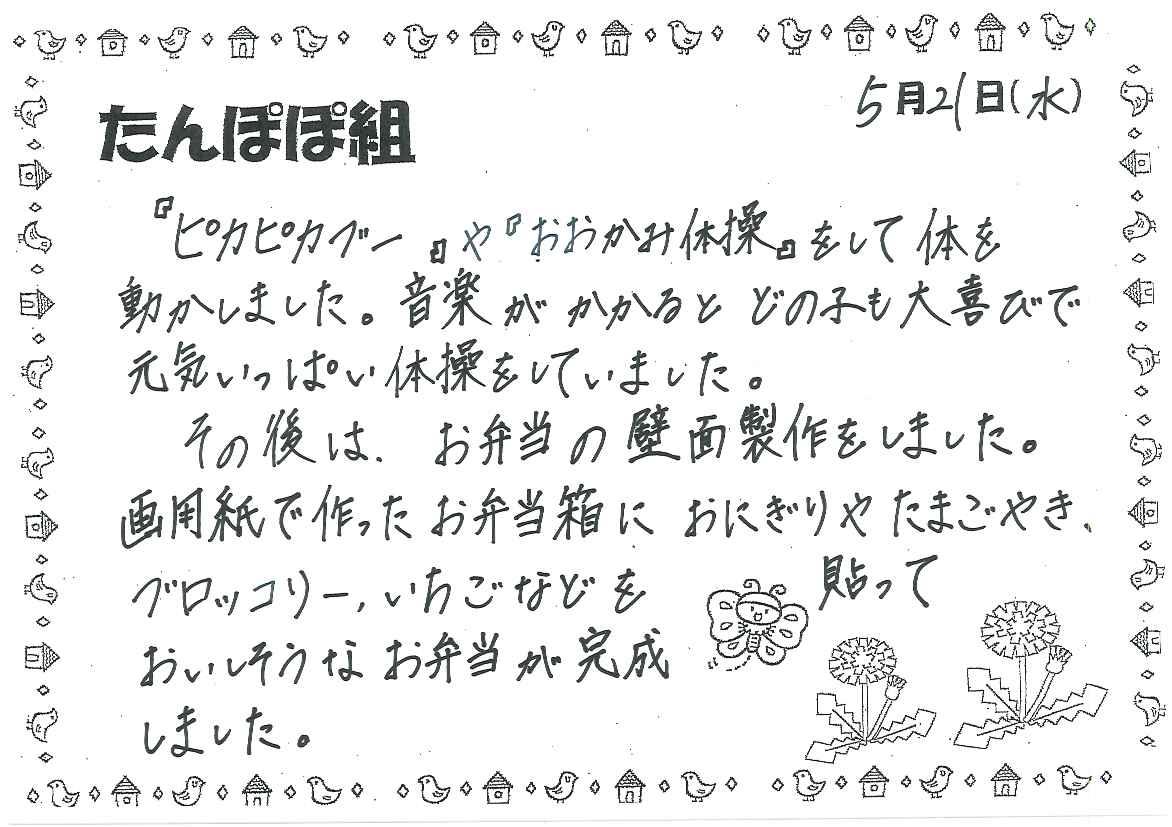 5月21日(水)
たんぽぽ組
『ピカピカブー』や『おおかみ体操』をして体を
動かしました。音楽がかかるとどの子も大喜びで
元気いっぱい体操をしていました。
その後は、お弁当の壁面製作をしました。
画用紙で作ったお弁当箱におにぎりやたまごやき、
ブロッコリー、いちごなどを 貼って
おいしそうなお弁当が完成
しました。